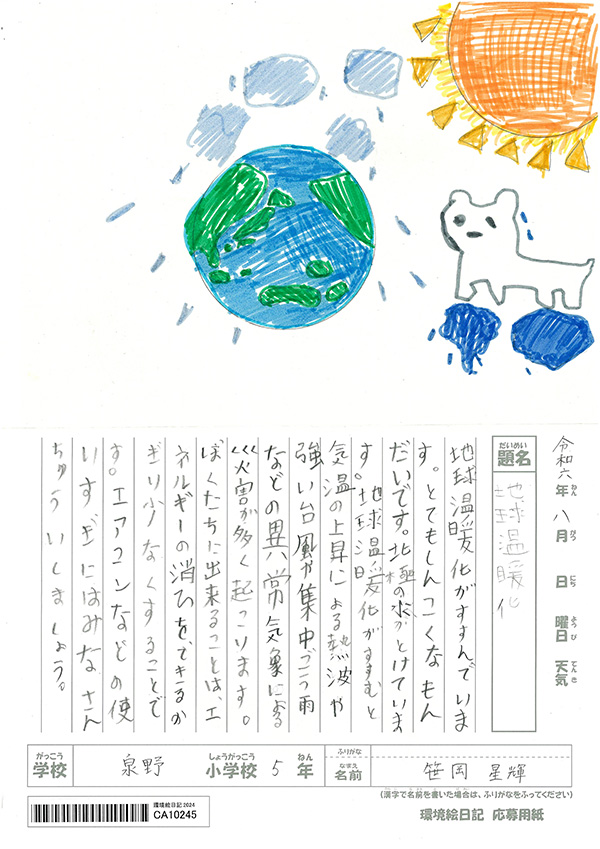 令和六年 八月 日 曜日 天気
ねん がつ にち ようび てんき
だいめい
題名
地球温暖化
地球温暖化がすすんでいま
す。とてもしんこくなもん
だいです。北極の氷がとけていま
す。地球温暖化がすすむと
気温の上昇による熱波や
強い台風や集中ごう雨
などの異常気象による
災害が多く起こります。
ぼくたちに出来ることは、エ
ネルギーの消ひを、できるか
ぎり少なくすることで
す。エアコンなどの使
いすぎにはみなさん
ちゅういしましょう。
がっこう しょうがっこう ねん
学校 泉野 小学校 5 年
ふりがな
なまえ
名前 笹岡 星輝
(漢字で名前を書いた場合は、ふりがなをふってください)
環境絵日記2024
CA10245
環境絵日記 応募用紙